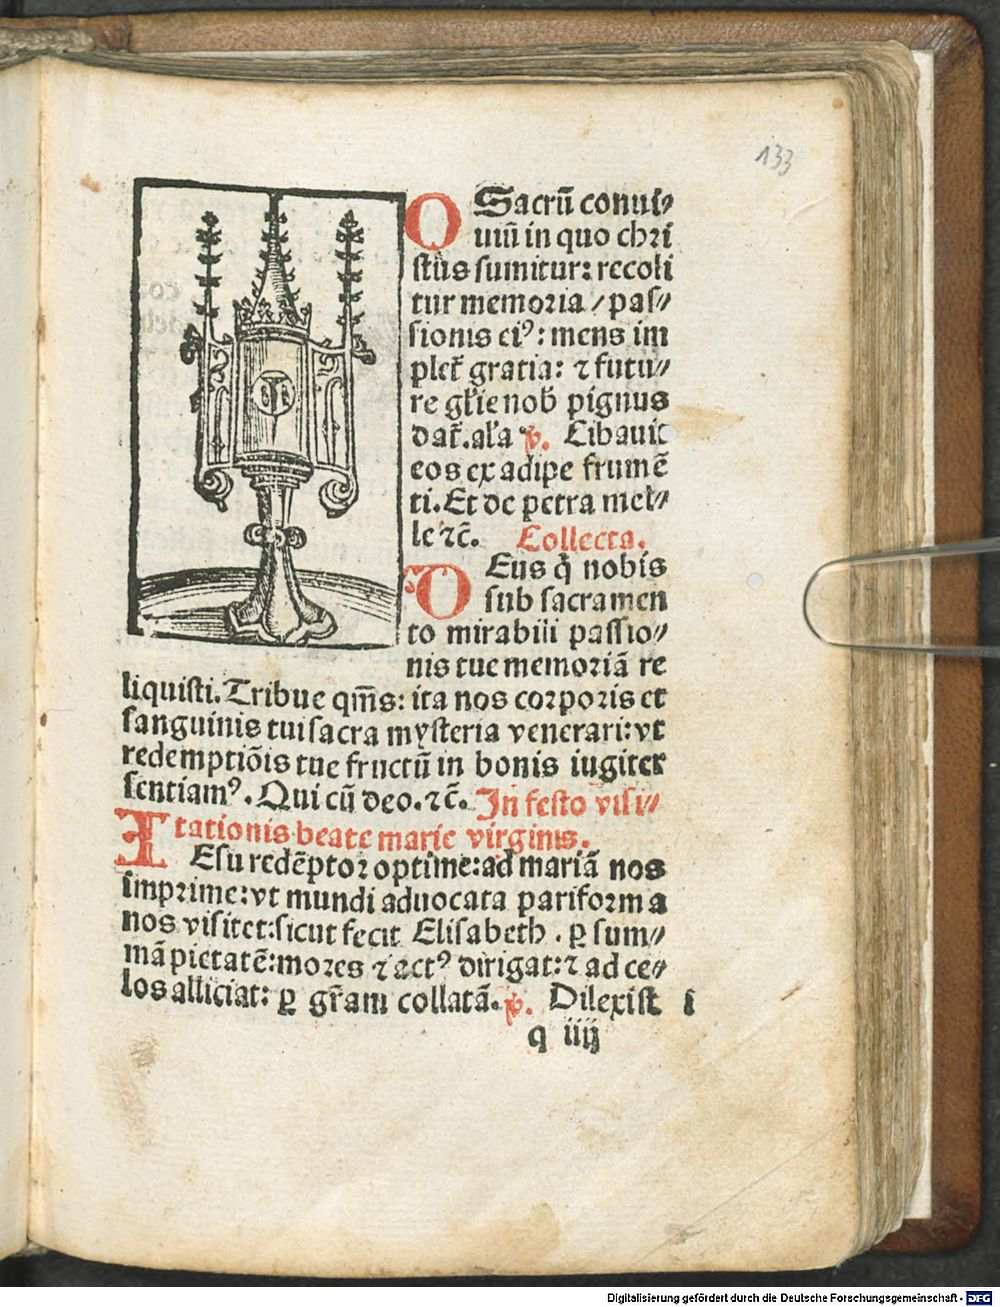 133
O Sacrū conui⸗
uiū in quo chri
stus sumitur: recoli
tur memoria / pas⸗
sionis eiꝰ: mens im
plet̄ gratia: ⁊ futu⸗
re gl̄ie nob̄ pignus
dat̄. al̄a ꝟ. Cibauit
eos ex adipe frumē
ti. Et de petra mel⸗
le ⁊c̄. Collecta.
DEus q̄ nobis
sub sacramen
to mirabili passio⸗
nis tue memoriā re
liquisti. Tribue qm̄s: ita nos corporis et
sanguinis tui sacra mysteria venerari: vt
redemptiōis tue fructū in bonis iugiter
sentiamꝰ. Qui cū deo. ⁊c̄. In festo visi⸗
tationis beate marie virginis.
IEsu redēptor optime: ad mariā nos
imprime: vt mundi aduocata pariforma
nos visitet: sicut fecit Elisabeth. ꝑ sum⸗
mā pietatē: mores ⁊ actꝰ dirigat: ⁊ ad ce⸗
los alliciat: ꝑ gr̄am collatā. ꝟ. Dilexist i
q iiij
Digitalisierung gefördert durch die Deutsche Forschungsgemeinschaft - DFG